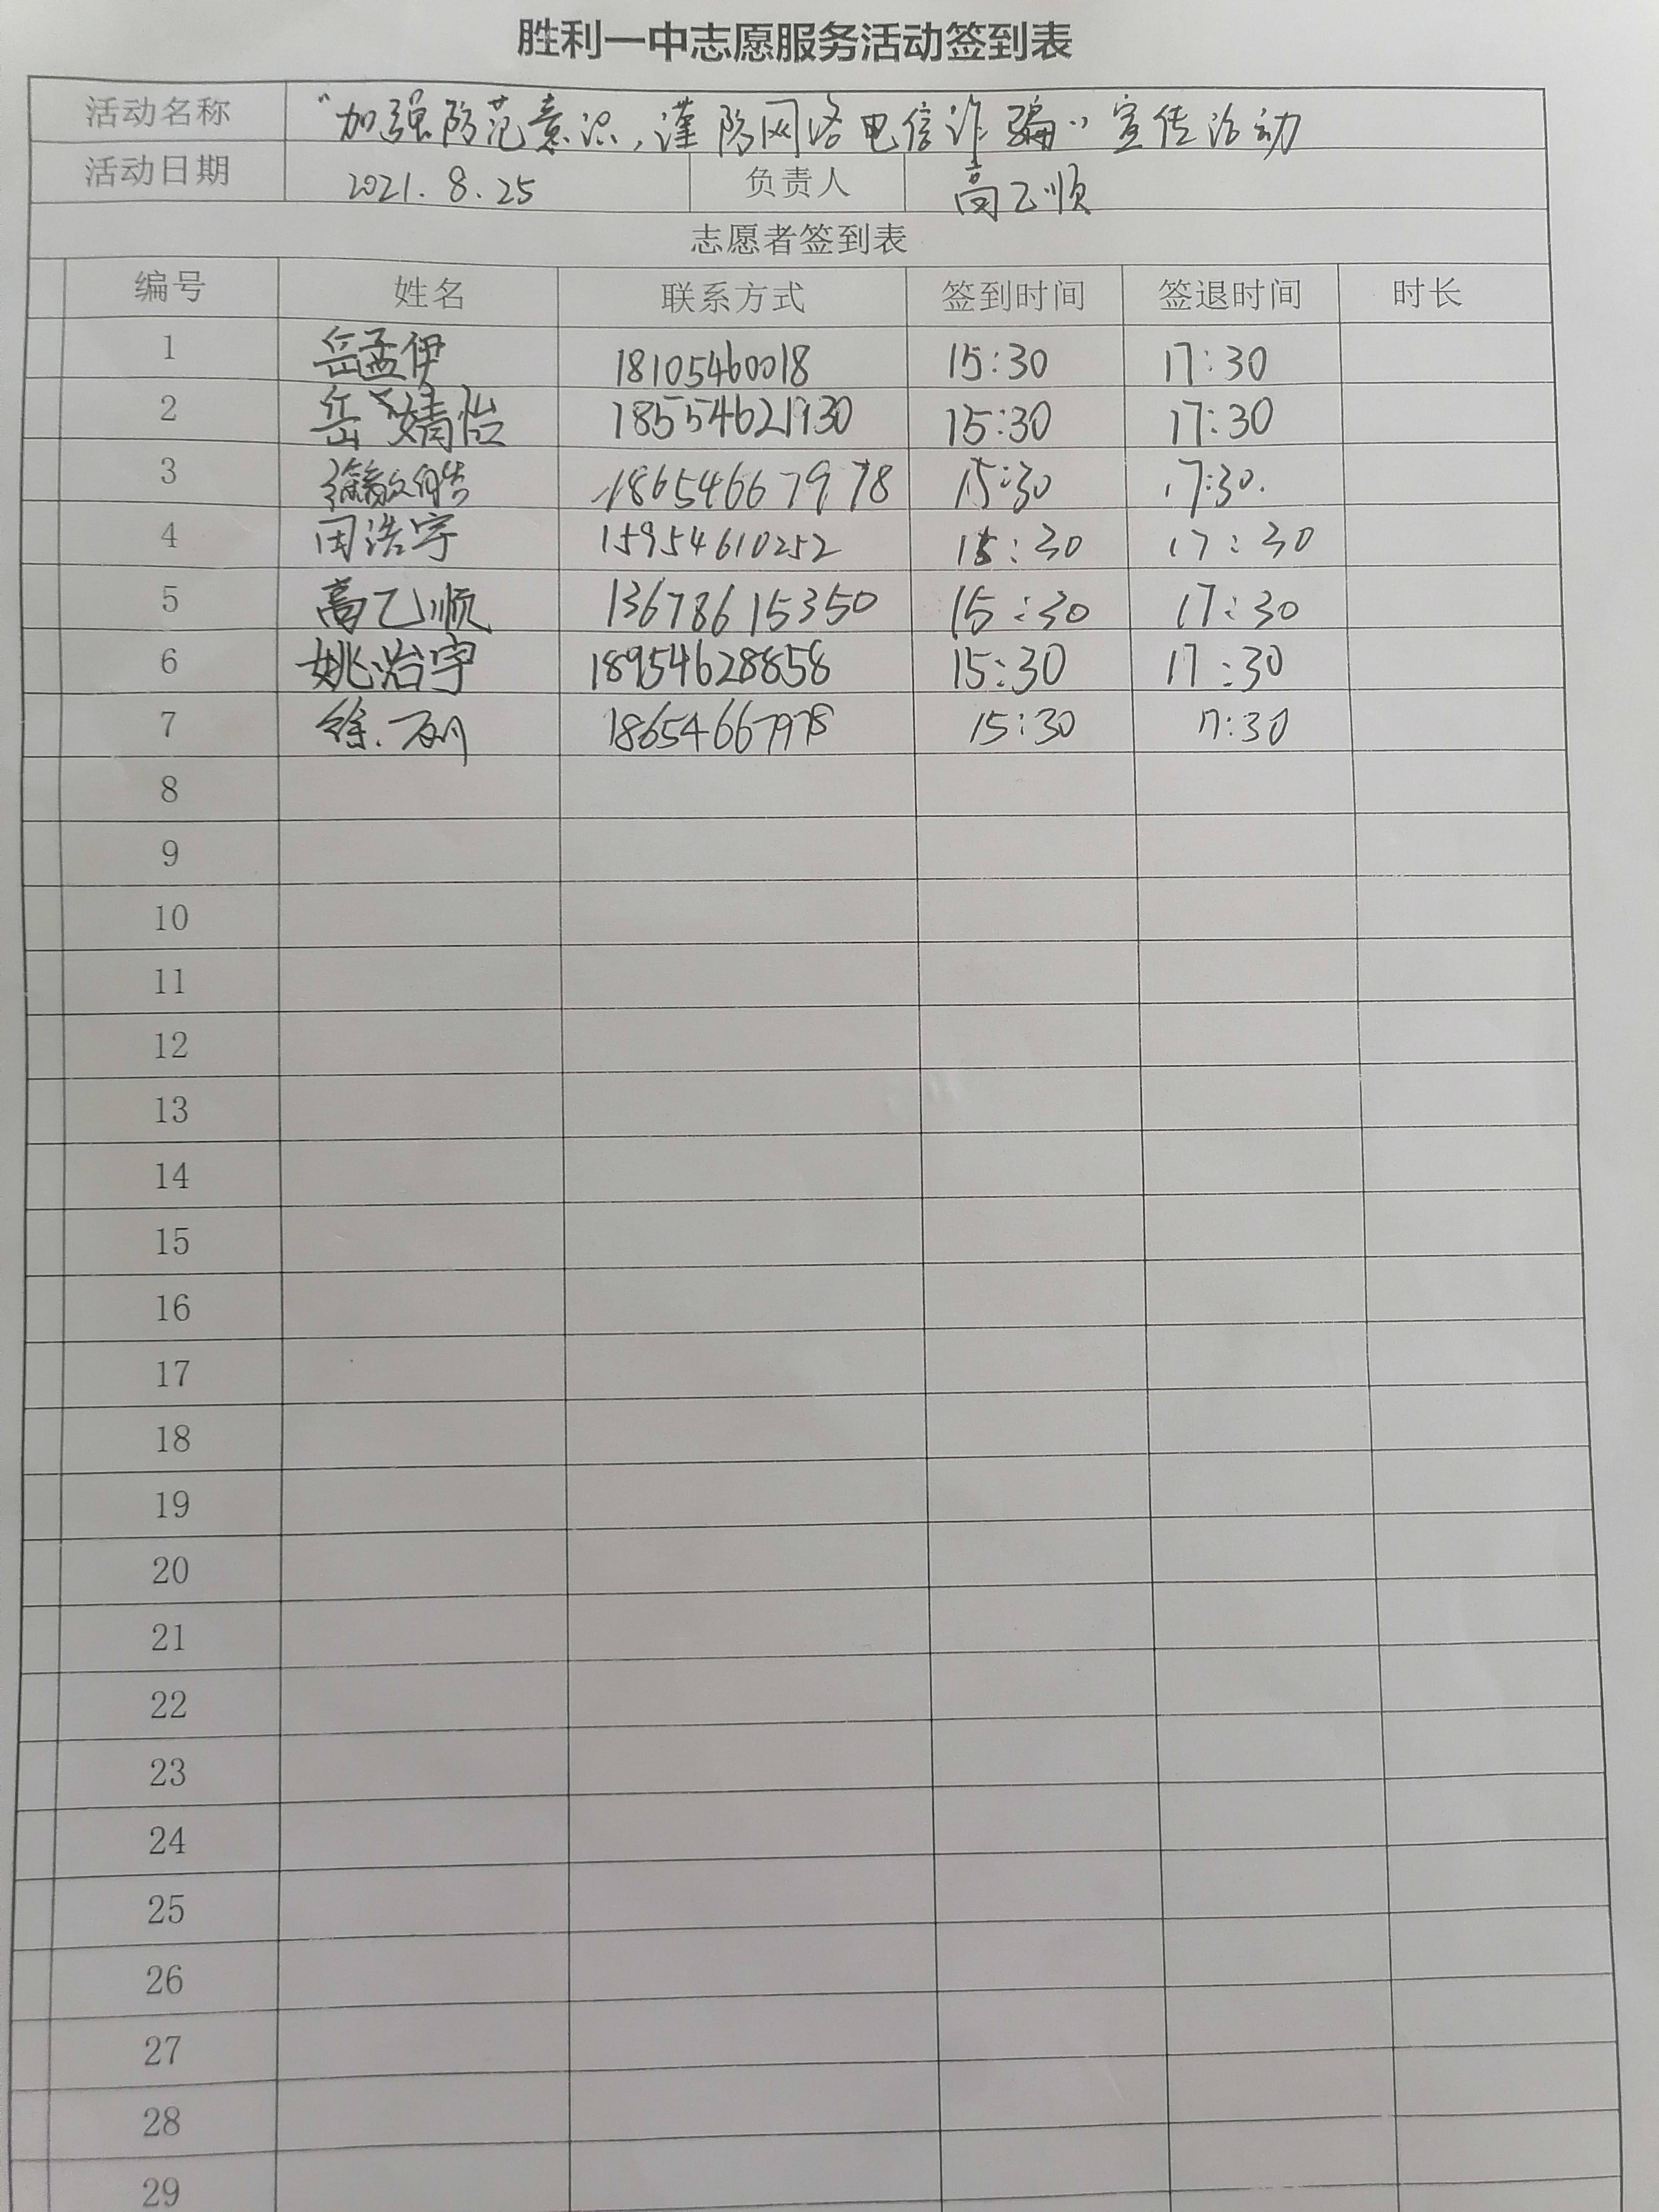 胜利一中志愿服务活动签到表
活动名称 “加强防范意识,谨防网络电信诈骗”宣传活动
活动日期 2021.8.25 负责人 高乙顺
志愿者签到表
编号 姓名 联系方式 签到时间 签退时间 时长
1 岳孟伊 18105460018 15:30 17:30
2 岳婧怡 18554621930 15:30 17:30
3 18654667978 15:30 17:30.
4 田浩宇 15954610252 15:30 17:30
5 高乙顺 13678615350 15:30 17:30
6 姚治宇 18954628858 15:30 17:30
7 徐 18654667978 15:30 17:30
8
9
10
11
12
13
14
15
16
17
18
19
20
21
22
23
24
25
26
27
28
29